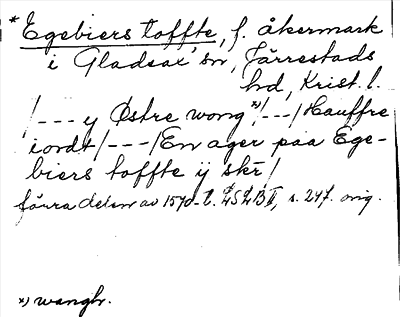 * Egebiers toffte, f. åkermark
i Gladsax' sn, Järrestads
hd, Krist. l.
/--- y Østre wong *)/---/ Hauffre
iordt/---/ En ager paa Ege-
biers toffte ij skr̄/
Södra delen av 1570-t. LSLB II, s. 247. orig.
*) wangh.